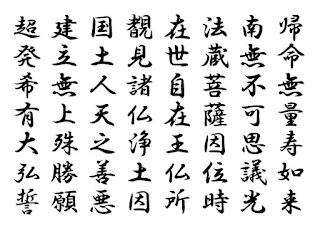 帰命無量寿如来
南無不可思議光
法蔵菩薩因位時
在世自在王仏所
覩見諸仏浄土因
国土人天之善悪
建立無上殊勝願
超発希有大弘誓